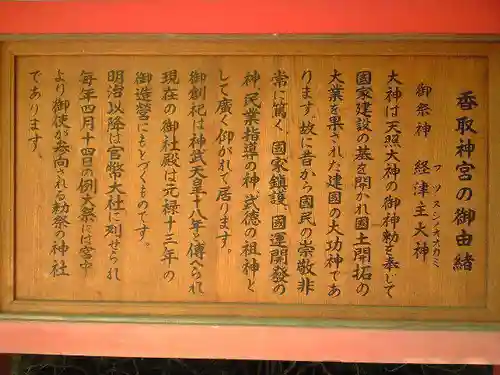 香取神宮の御由緒
御祭神　経津主大神
フツヌシノオオカミ
大神は天照大神の御神勅を奉じて
國家建設の基を開かれ國土開拓の
大業を果された建国の大功神であ
ります。故に昔から國民の崇敬非
常に篤く、國家鎮護、國運開発の
神、民業指導の神、武徳の祖神と
して廣く仰がれて居ります。
御創祀は神武天皇十八年と傳へられ
現在の御社殿は元禄十三年の
御造營にもとづくものです。
明治以降は官幣大社に列せられ
毎年四月十四日の例大祭には宮中
より御使が参向される勅祭の神社
であります。